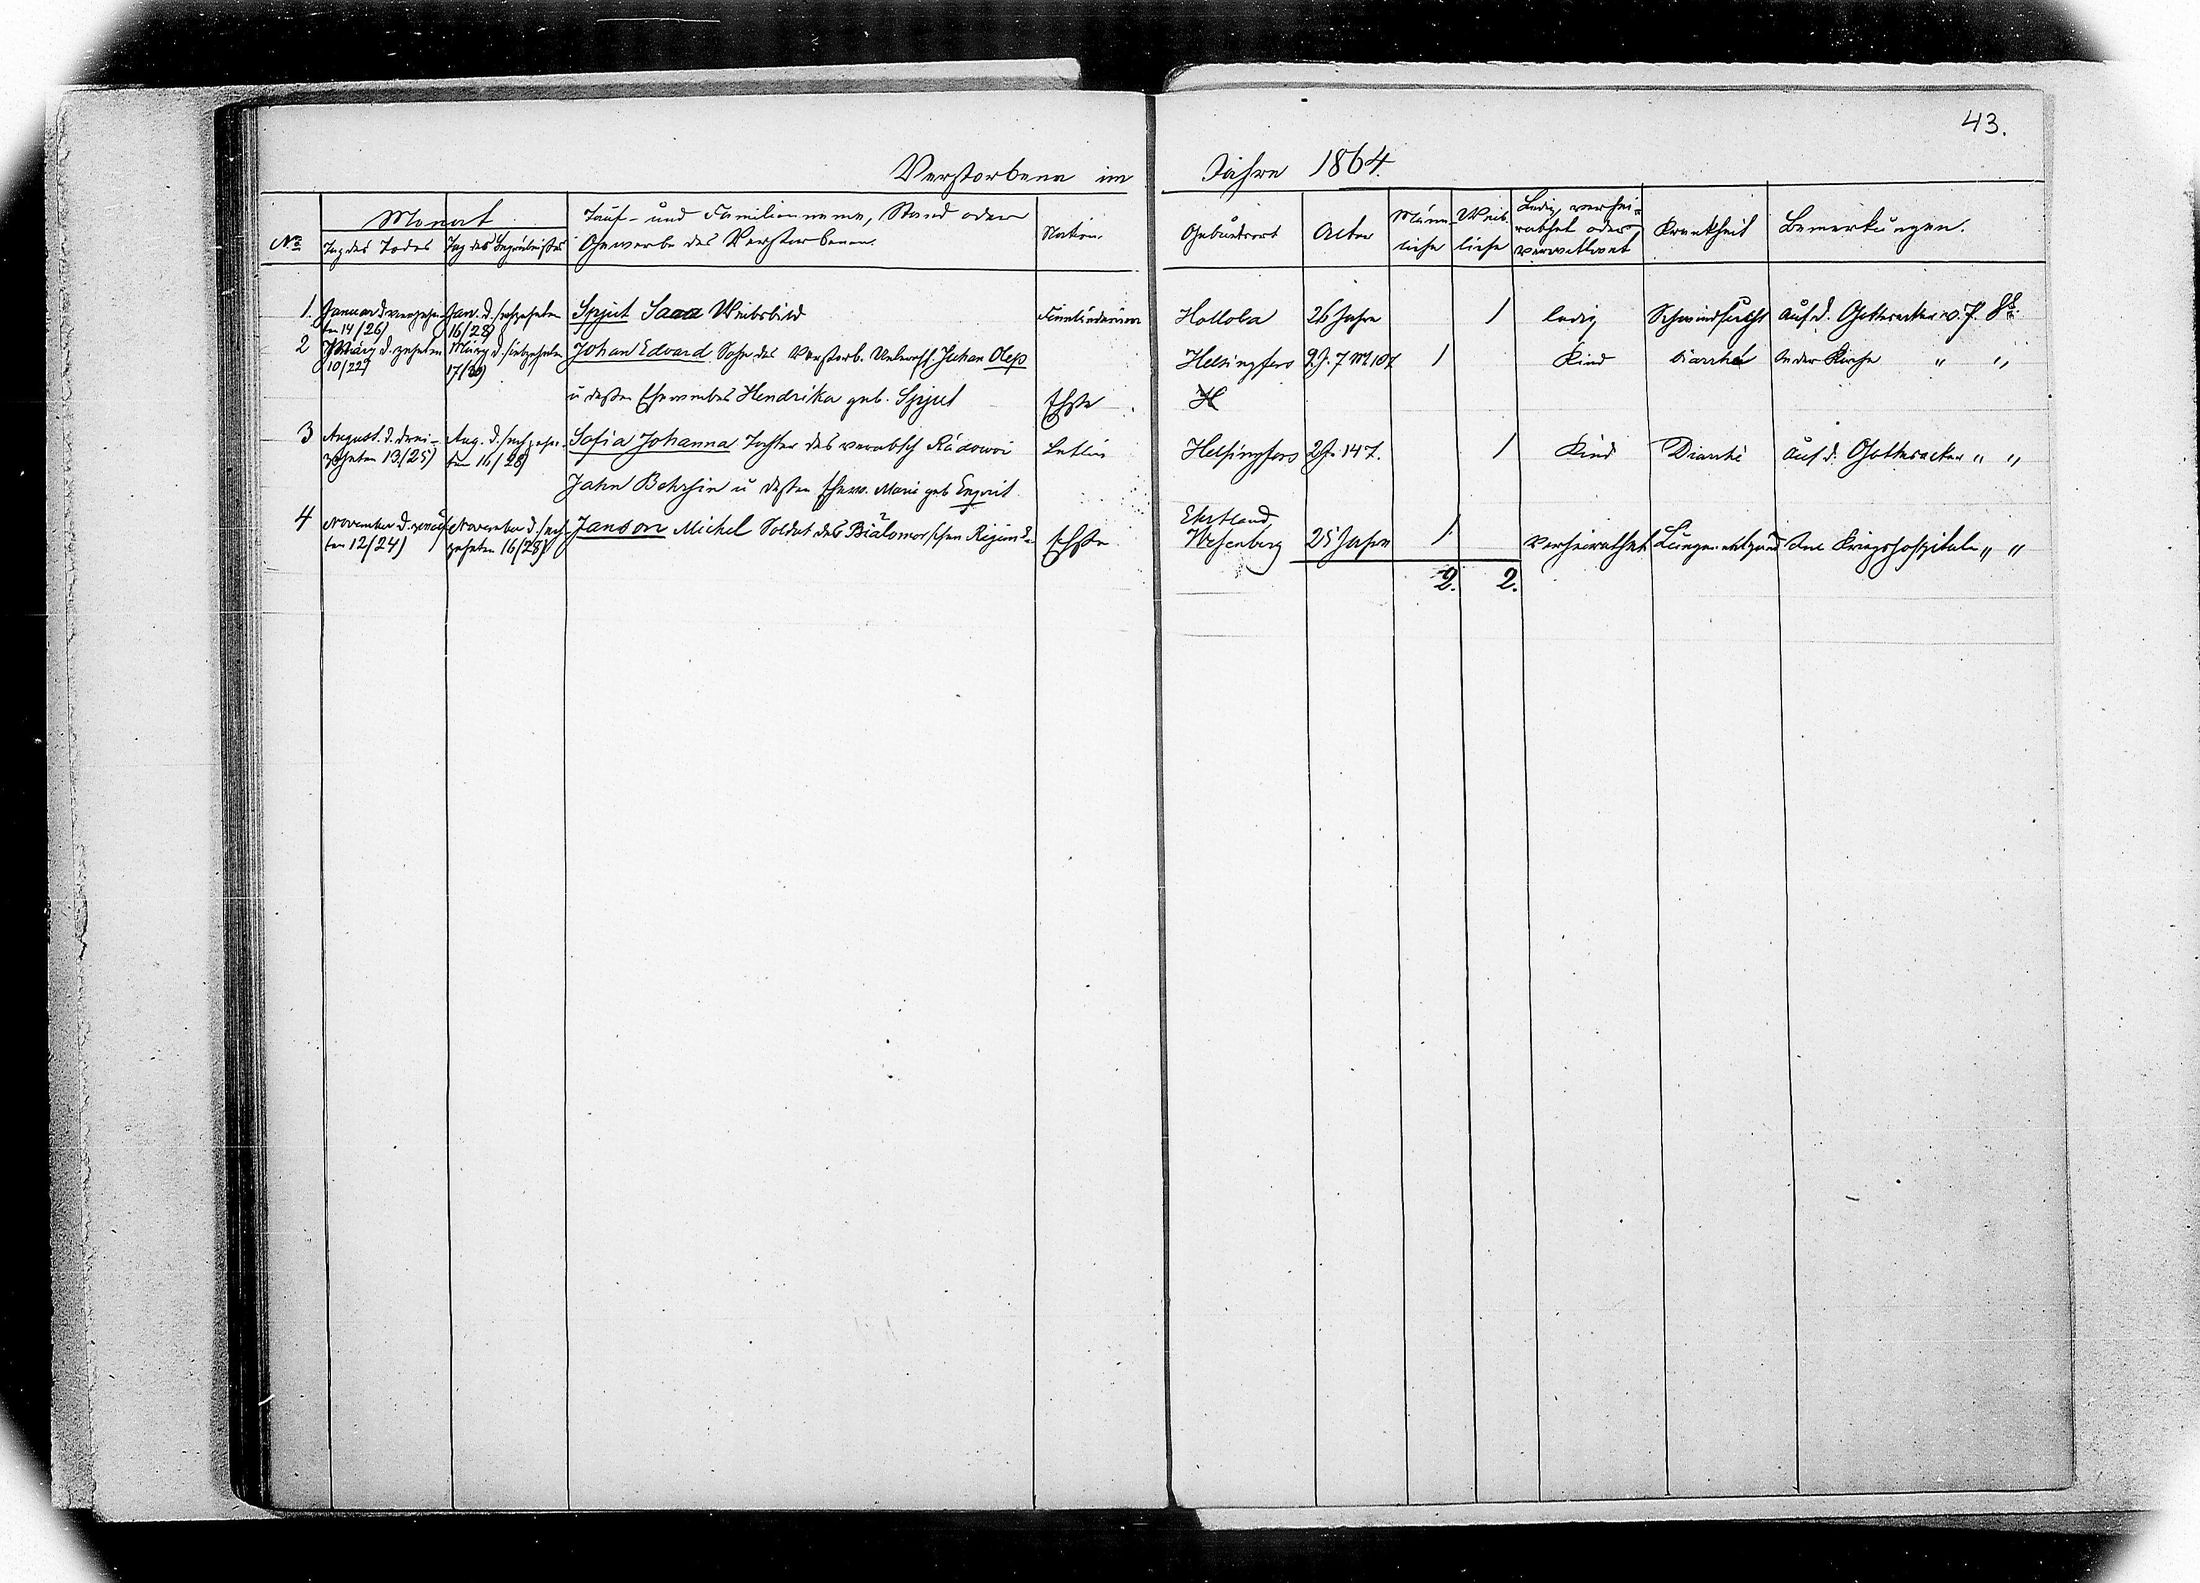 43.
Verstorbene im Jahre 1864.
No Monat Tauf- und Familienname, Stand oder Nation. Geburtsort Alter Männ- Weib- Ledig, verhei- Krankheit Bemerkungen.
Tag des Todes Tag des Begräbnisses Gewerbe des Verstorbenen. liche liche rathet oder
verwittwet
1. Januar d. vierzehn- Jan. d. sechzehnten Spjut Saara Weibsbild Finnländerinn Hollola 26 Jahre 1 ledig Schwindsucht Auf d. Gottesacker v. P.
ten 14/26) 16/28)
2 März d. zehnten März d. siebzehnten Johan Edvard Sohn des Verstorb. Johan Olep Helsingfors 2 J. 7 M 1 Kind Diarrhé In der Kirche " "
10/22) 17/29)
u dessen Eheweibes Hendrika geb. Spjut Ehste H
3 August. d. drei- Aug. d. sechzehn- Sofia Johanna Tochter des verabsch Rädowoi Lettin Helsingfors 2 J. 14 T. 1 Kind Diarrhé Auf d. Gottesacker " "
zehnten 13/25) ten 16/28)
Jahn Behrsin u dessen Ehew. Marie geb
4 November d. zwölf- November d. sech- Janson Michel Soldat des Bialomorschen Regim. Ehste Ehstland, 25 Jahre 1 verheirathet Lungenentzünd Im Kriegshospitale " "
ten 12/24) zehnten 16/28) Wesenberg
2. 2.